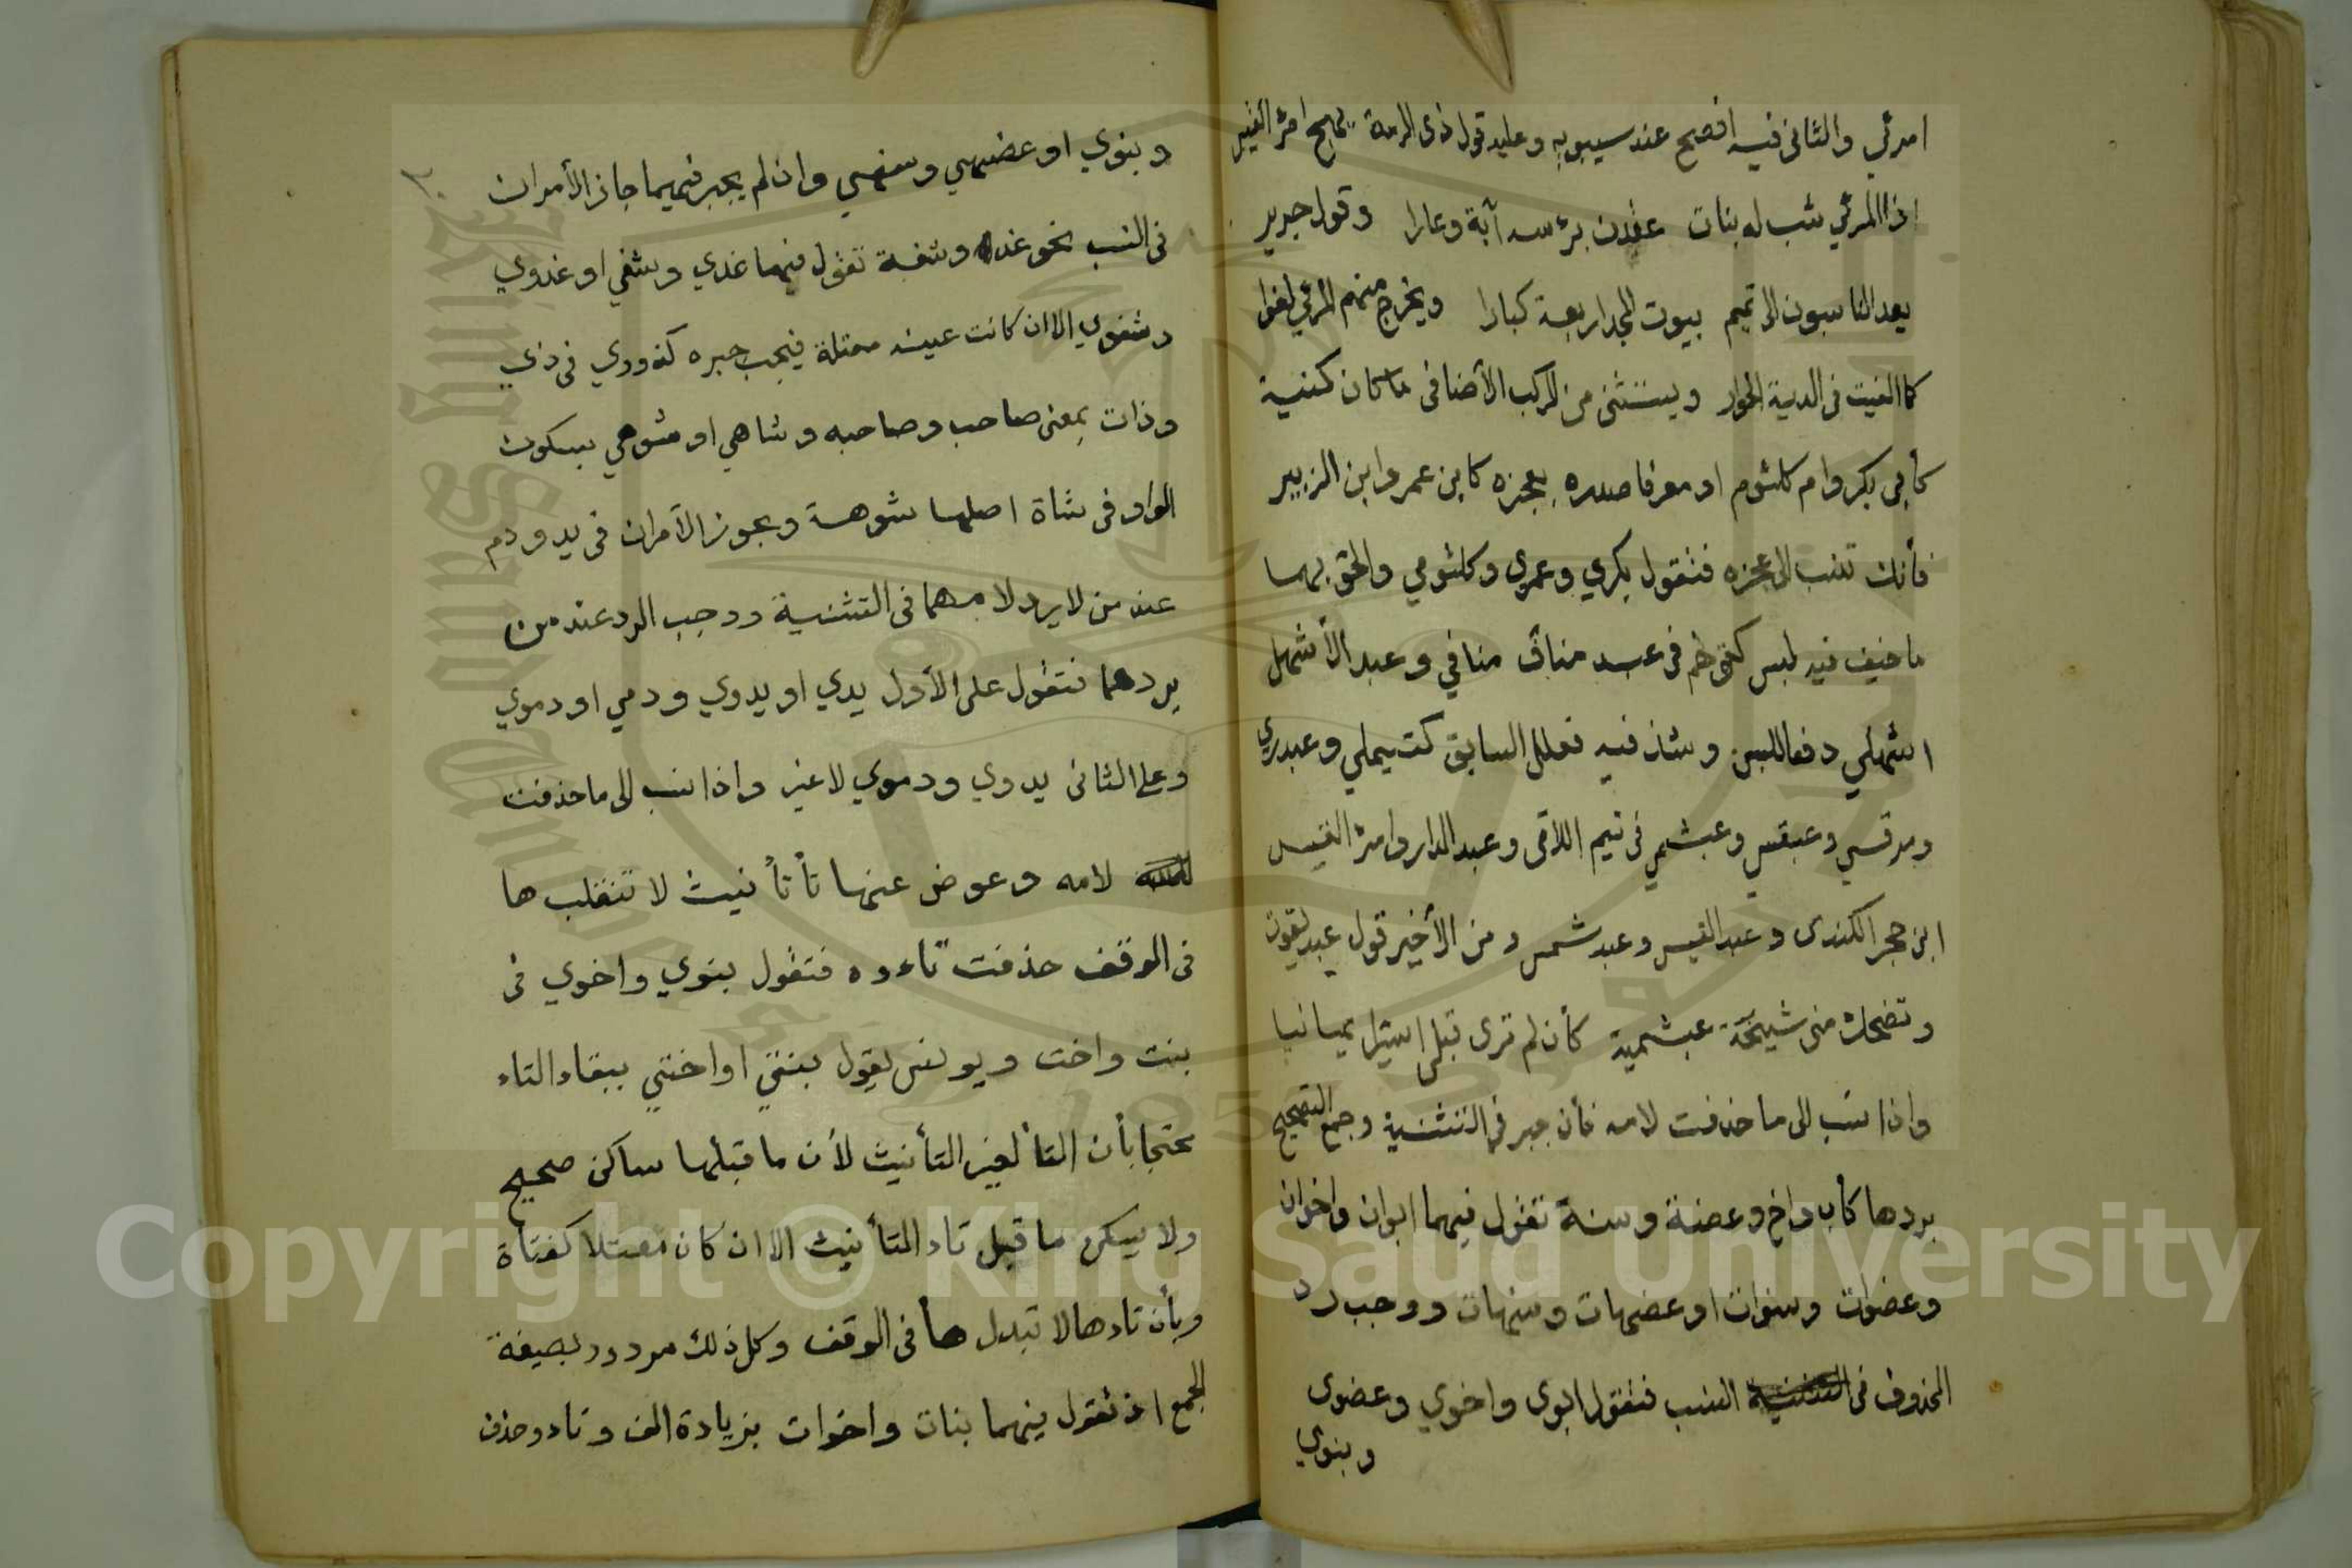 امرئي والثاني فيه افصح عند سيبويه وعليه قول ذى الرمة يهج امرٔ القيس
اذا المرئي شب له بنات عقدن برٔسه آبة وعارا وقول جرير
يعد الناسبون الى تميم بيوت المجد اربعة كبارا ويخرج منهم المرئي لغوا
كما الغيت فى الدية الحوار ويستثنى من المركب الأضافى ما كان كنية
كأبي بكر وام كلثوم او معرفا صدره بعجزه كابن عمر وابن الزبير
فأنك تنسب الى عجزه فتقول بكري وعمري وكلثومي والحق بهما
ما خيف فيه لبس كقولهم فى عبد مناف منافي وعبد الأشهل
اشهلي دفعا للبس وشذ فيه فعلل السابق كتيملي وعبدري
ومرقسي وعبقسي وعبشمي فى تيم اللاتى وعبد الدار وامرٔ القيس
ابن حجر الكندى وعبد القيس وعبد شمس ومن الأخير قول عبد يغوث
وتضحك منى شيخة عبشمية كأن لم ترى قبلى اسيرا يمانيا
واذا نسب الى ما حذفت لامه فأن جبر فى التثنية وجمع التصحيح
بردها كأب واخ وعضة وسنة تقول فيهما ابوان واخوان
وعضوات وسنوات او عضهات وسنهات ووجب رد
المحذوف فى النسب فتقول ابوى واخوي وعضوى
وبنوي
وبنوي او عضهي وسنهي وان لم يجبر فيهما جاز الأمران
فى النسب نحو غد وشفة تقول فيهما غدي وشفي او غدوي
وشفوي الا ان كانت عينه معتلة فيجب جبره كذووي فى ذي
وذات بمعنى صاحب وصاحبه وشاهي او شوهي بسكون
الواو فى شاة اصلها شوهة ويجوز الأمران فى يد ودم
عند من لا يرد لامهما فى التثنية ووجب الرد عند من
يردهما فتقول على الأول يدي او يدوي ودمي او دموي
وعلى الثانى يدوي ودموي لا غير واذا نسب الى ما حذفت
لامه وعوض عنها تأ تأنيث لا تنقلب ها
فى الوقف حذفت تاءوه فتقول بنوي واخوي فى
بنت واخت ويونس يقول بنتي او اختي ببقاء التاء
محتجا بأن التأ لغير التأنيث لأن ما قبلها ساكن صحيح
ولا يسكن ما قبل تاء التأنيث الا ان كان معتلا كفتاة
وبأن تاءها لا تبدل هأ فى الوقف وكل ذلك مردود بصيغة
الجمع اذ تقول فيهما بنات واخوات بزيادة الف وتاء وحذف
Copyright © King Saud University